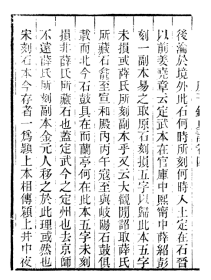 後淪於境外此石何時所刻何時入土定在石晉
以前姜堯章云定武本在官庫中熙甯中薛紹彭
刻一副本易之取原石刻損五字以歸此本五字
未損或薛氏所刻副本乎又云大觀間詔取薛氏
所藏石龕置宣和殿丙午寇至與岐陽石鼓俱
載而北今石鼓具在而蘭亭何在此本五字未刻
損非薛氏所藏石也蓋定武今之定州也去京師
不遠薛氏所刻副本金元人移之於此理或然也
宋刻石本今存者一爲潁上本相傳潁上井中夜